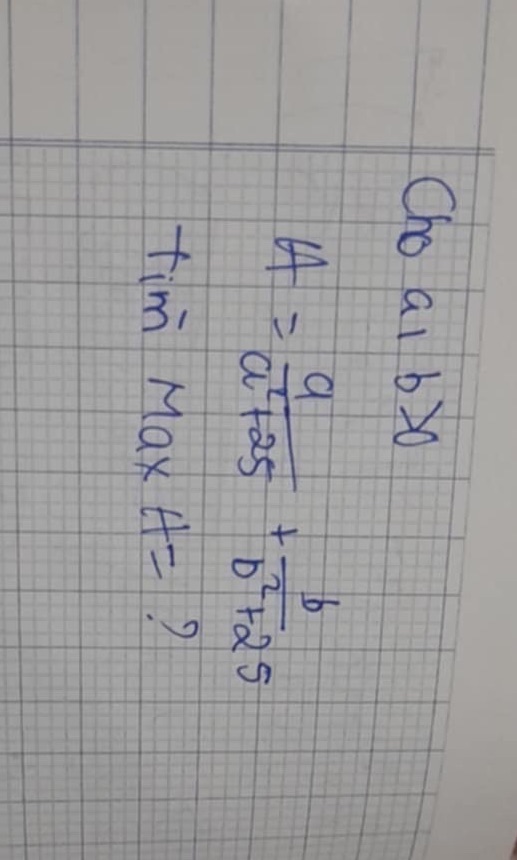 Cho a, b > 0
A = \frac{a}{a^2+25} + \frac{b}{b^2+25}
tìm Max A = ?